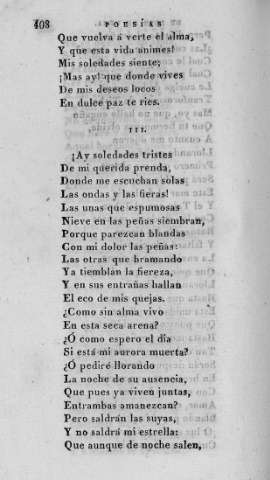 408 POESÍAS
Que vuelva á verte el alma,
Y que esta vida animes!
Mis soledades siente;
¡Mas ay! que donde vives
De mis deseos locos
En dulce paz te ries.
III.
¡Ay soledades tristes
De mi querida prenda,
Donde me escuchan solas
Las ondas y las fieras!
Las unas que espumosas
Nieve en las peñas siembran,
Porque parezcan blandas
Con mi dolor las peñas:
Las otras que bramando
Ya tiemblan la fiereza,
Y en sus entrañas hallan
El eco de mis quejas.
¿Como sin alma vivo
En esta seca arena?
¿Ó como espero el dia
Si está mi aurora muerta?
¿Ó pediré llorando
La noche de su ausencia,
Que pues ya viven juntas,
Entrambas amanezcan?
Pero saldrán las suyas,
Y no saldrá mi estrella:
Que aunque de noche salen,